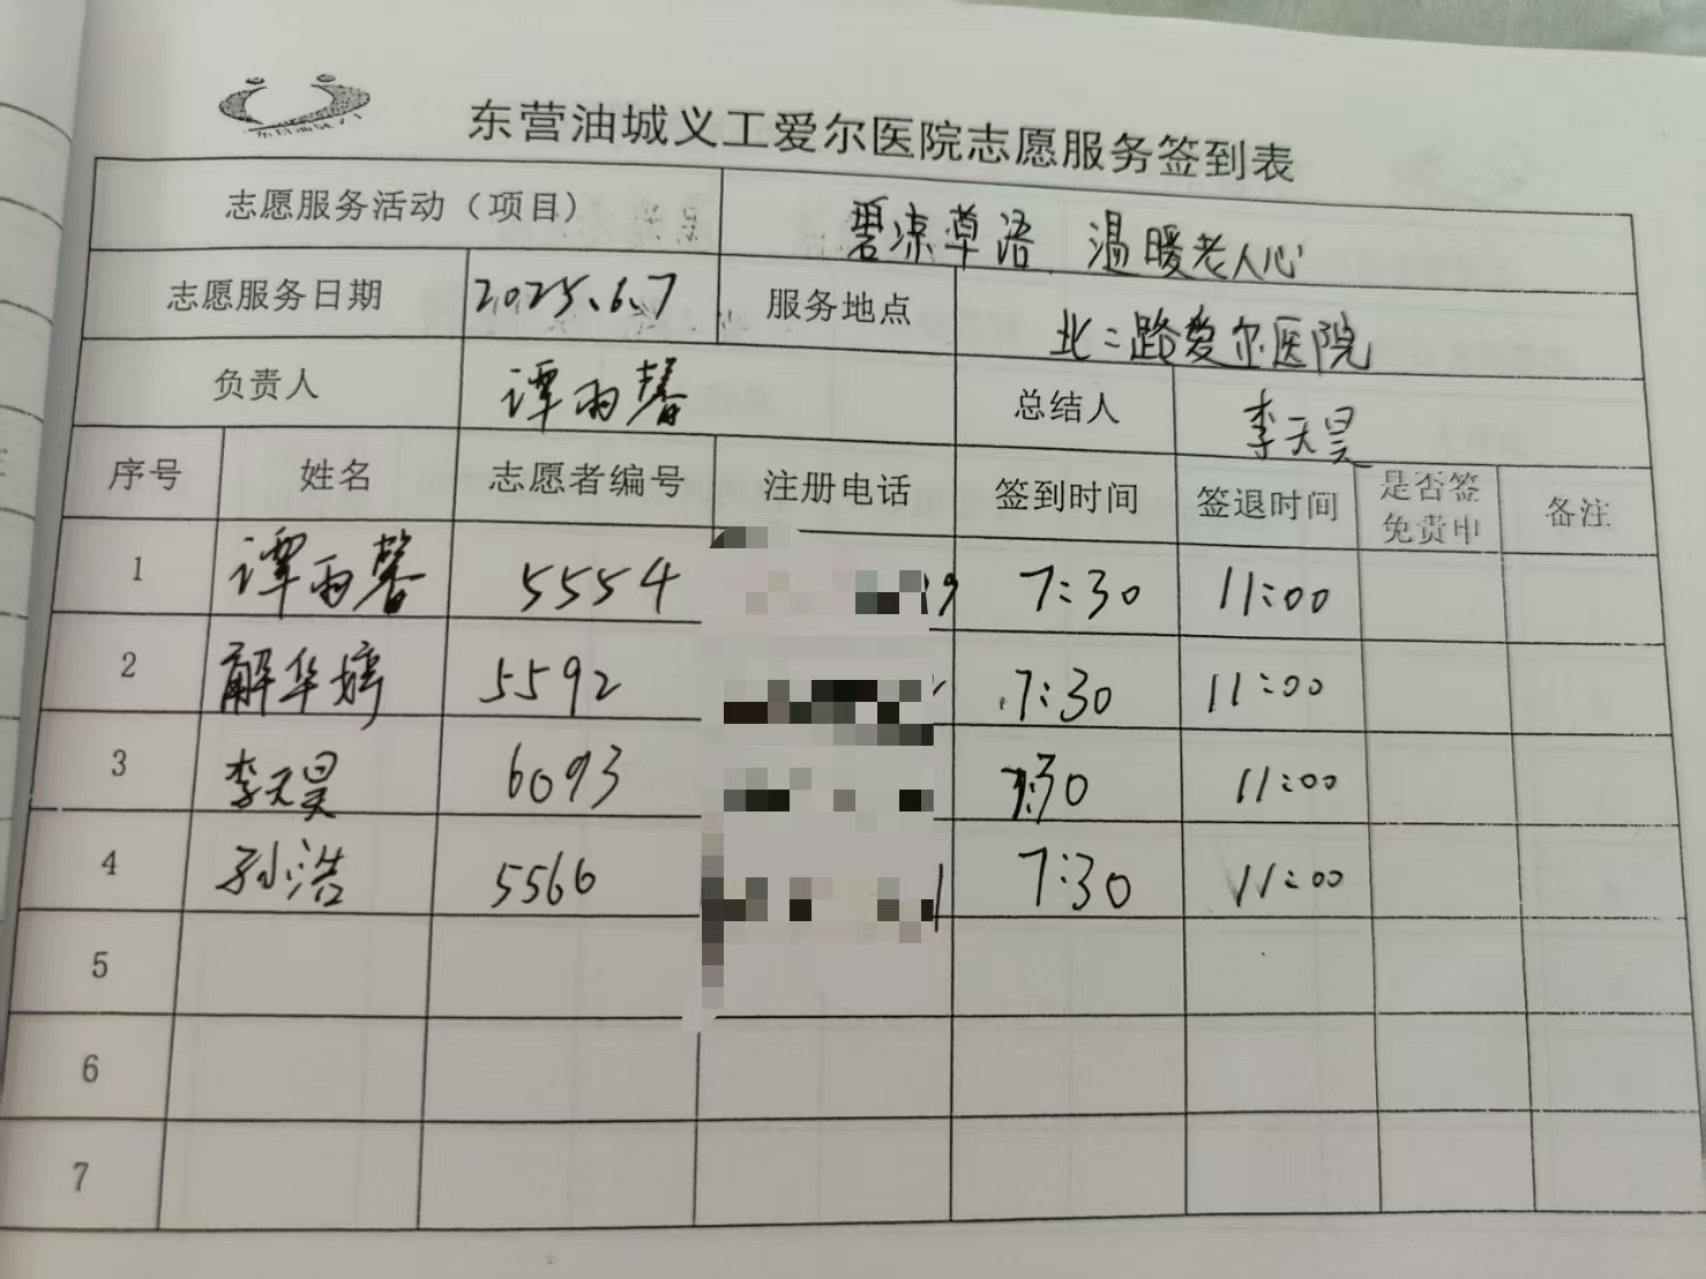 东营油城义工爱尔医院志愿服务签到表
志愿服务活动（项目） 碧凉草语 温暖老人心
志愿服务日期 2025.6.7 服务地点 北二路爱尔医院
负责人 谭雨馨 总结人 李天昊
序号 姓名 志愿者编号 注册电话 签到时间 签退时间 是否签免费中 备注
1 谭雨馨 5554 19 7:30 11:00
2 解华婷 5592 7:30 11:00
3 李天昊 6093 7:30 11:00
4 孙浩 5566 1 7:30 11:00
5
6
7